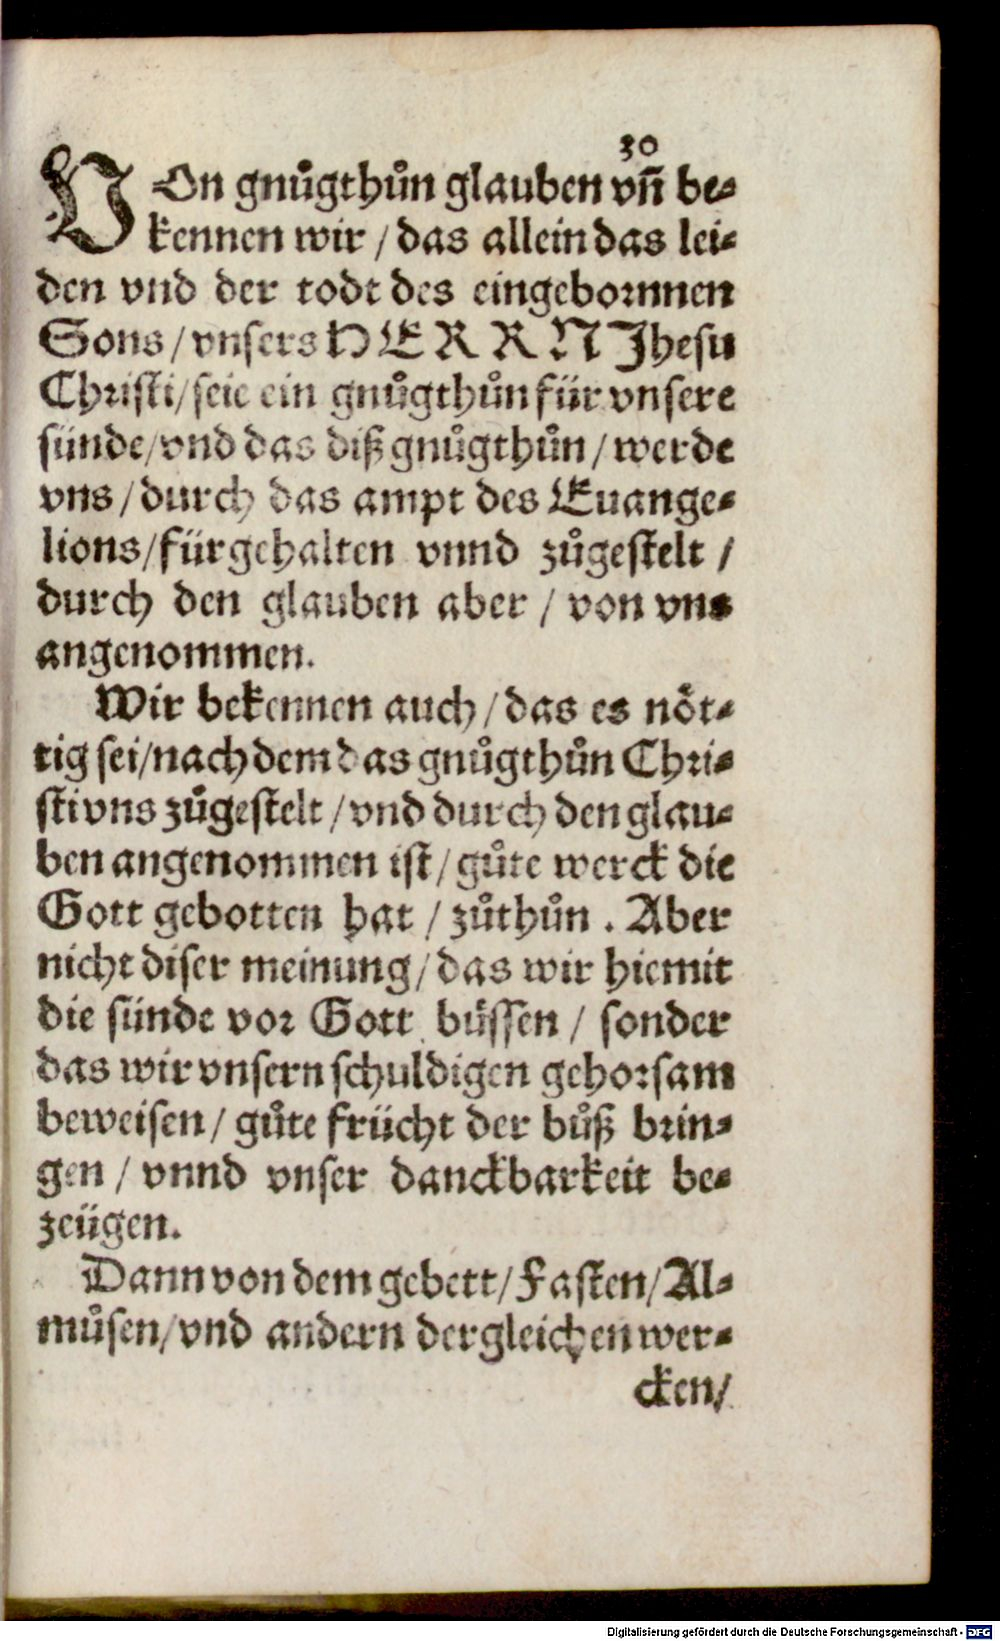 30
VOn gnůgthůn glauben vn̄ be-
kennen wir / das allein das lei-
den vnd der todt des eingebornnen
Sons / vnsers HERRN Jhesu
Christi / seie ein gnůgthůn für vnsere
sünde / vnd das diß gnůgthůn / werde
vns / durch das ampt des Euange-
lions / fürgehalten vnnd zůgestelt /
durch den glauben aber / von vns
angenommen.
Wir bekennen auch / das es nöt-
tig sei / nach dem das gnůgthůn Chri-
sti vns zůgestelt / vnd durch den glau-
ben angenommen ist / gůte werck die
Gott gebotten hat / zůthůn . Aber
nicht diser meinung / das wir hiemit
die sünde vor Gott büssen / sonder
das wir vnsern schuldigen gehorsam
beweisen / gůte frücht der bůß brin-
gen / vnnd vnser danckbarkeit be-
zeügen.
Dann von dem gebett / Fasten / Al-
můsen / vnd andern dergleichen wer-
cken /
Digitalisierung gefördert durch die Deutsche Forschungsgemeinschaft - DFG